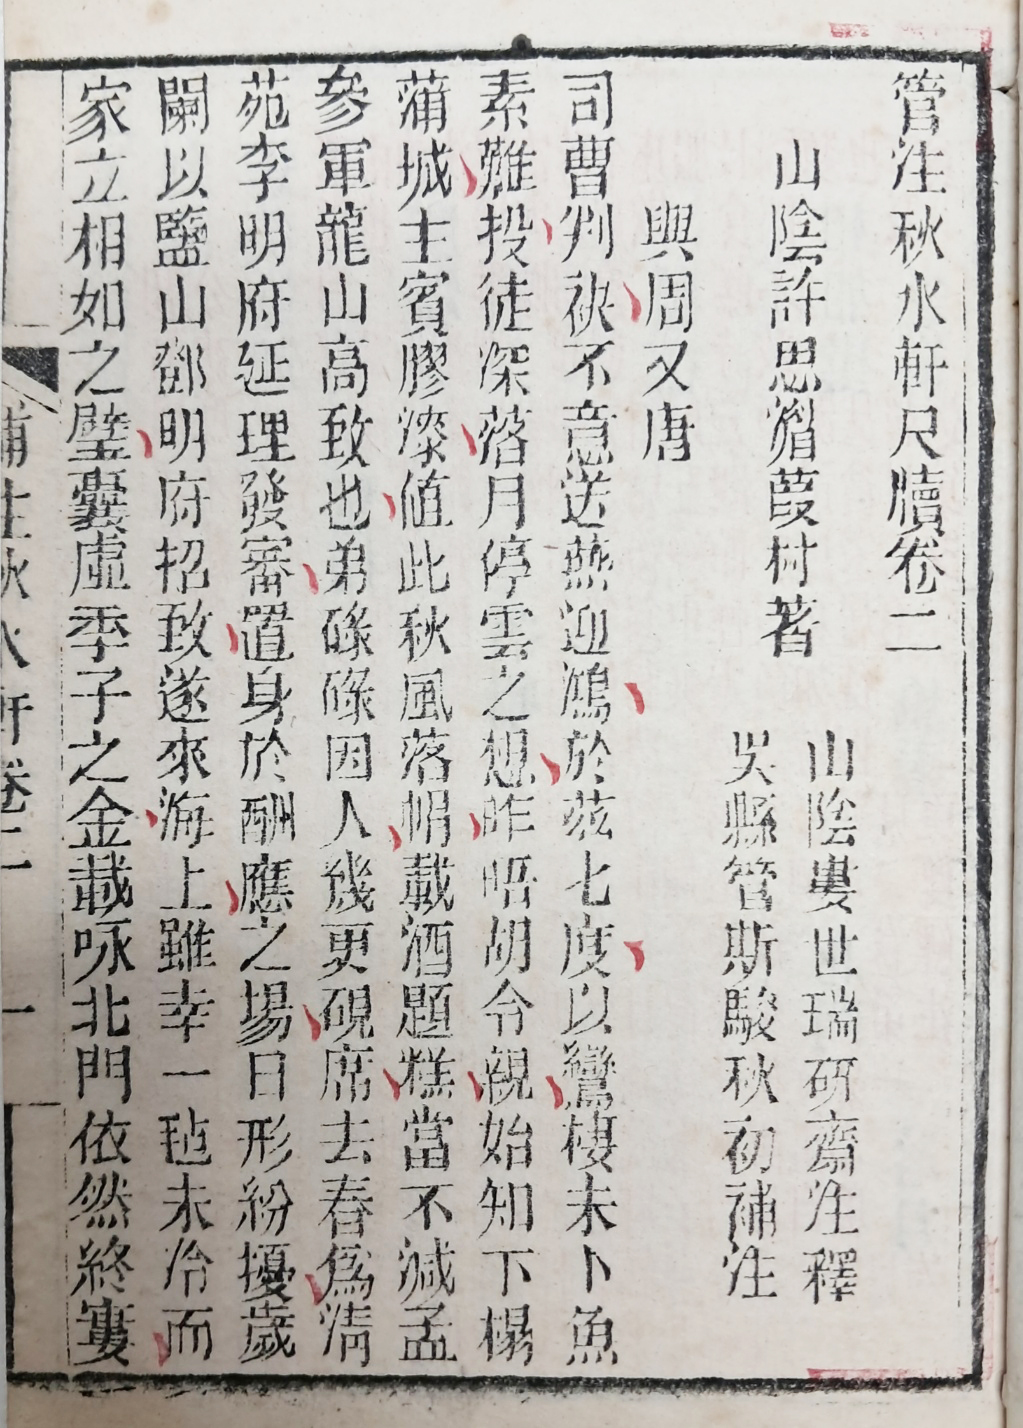 管注秋水軒尺牘卷二
山陰許思湄葭村著
山陰婁世瑞研齋注釋
吳縣管斯駿秋初補注
與周又唐
司曹判袂不意送燕迎鴻於茲七度以鸞棲未卜魚
素難投徒深落月停雲之想昨晤胡令親始知下榻
蒲城主賓膠漆值此秋風落帽載酒題糕當不減孟
參軍龍山高致也弟碌碌因人幾更硯席去春爲清
苑李明府延理發審置身於酬應之場日形紛擾歲
闌以鹽山鄧明府招致遂來海上雖幸一毡未冷而
家立相如之壁囊虛季子之金載咏北門依然終窶
補注秋水軒卷二
一